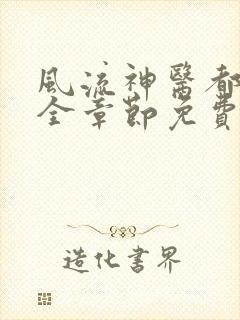 風流神醫都
全章節免費
造化書界